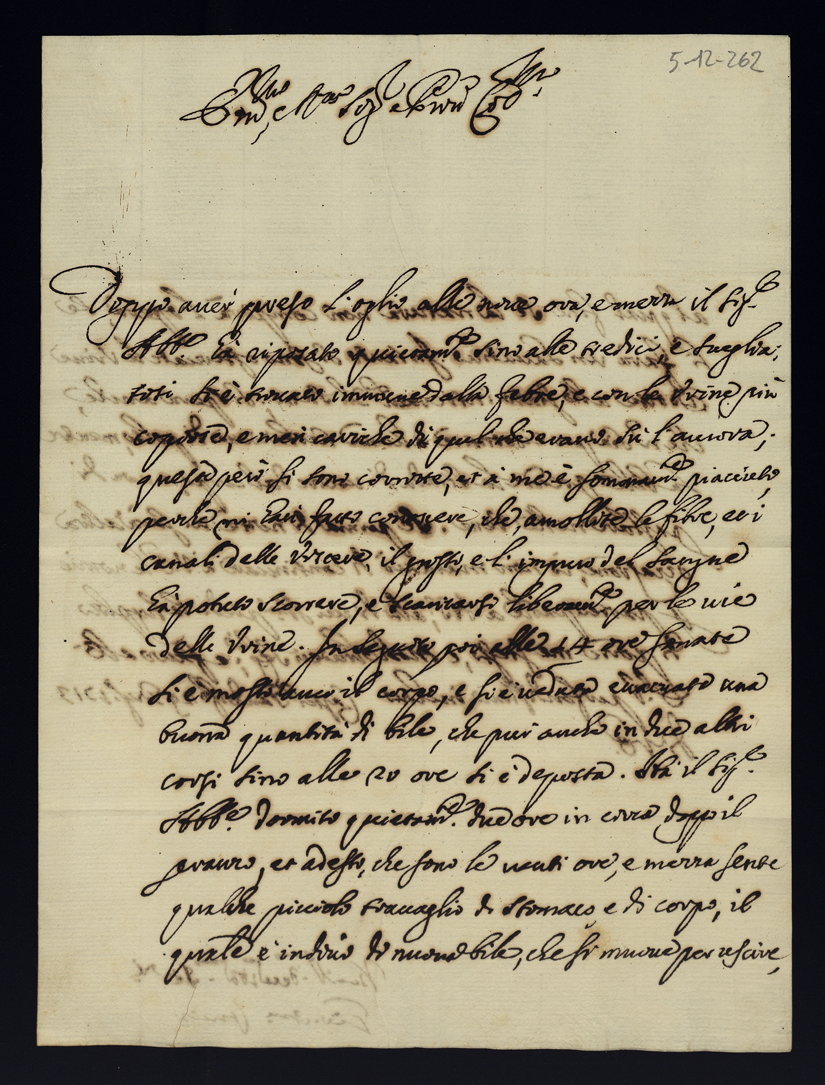 5-12-262
Ill.mo e Rev.mo Sig.r e Pron Col.mo
Doppo aver preso l'oglio alle nove ore, e mezza il Sig.r
Abb.e hà riposato quietam.te sino alle tredici, e sveglia,
tosi si è trovato immune dalla febre, e con le urine più
copiose, e men cariche di quel che erano sù l'aurora;
queste però si sono corrette, et à me è somam.te piaciuto,
perche mi hàn fatto conoscere, che, amollite le fibre, et i
canali delle viscere, il grosso, e l'impuro del sangue
hà potuto scorrere, e scaricarsi liberam.te per le vie
delle urine. In seguito poi alle 14 ore sonate
si è mosso anco il corpo, e si è veduta evacuata una
buona quantità di bile, che pur anche in due altri
corsi sino alle 20 ore si è deposta. Hà il Sig.r
Abb.e dormito quietam.te due ore in circa doppo il
pranzo, et adesso, che sono le venti ore, e mezza sente
qualche piccolo travaglio di stomaco, e di corpo, il
quale è indizio di nuova bile, che si muove per uscire,